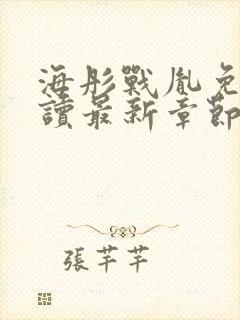 海彤戰胤免
讀最新章節
張芊芊